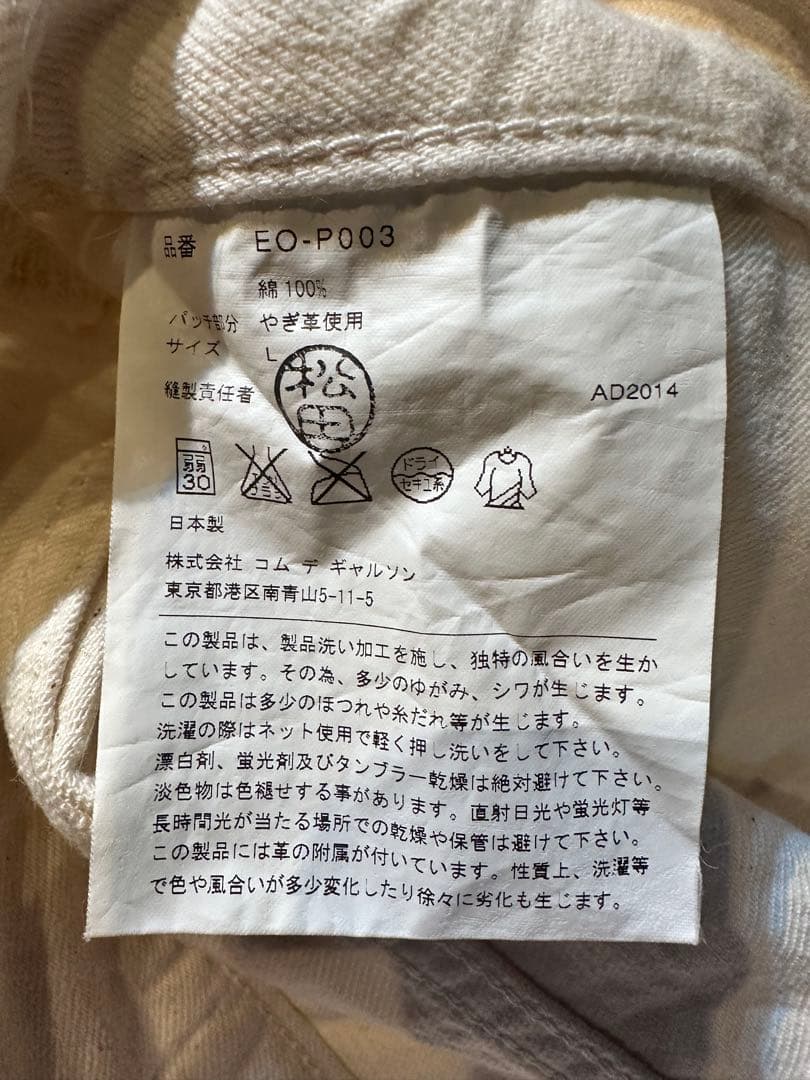 品番 EO-P003
綿 100%
パッチ部分 やぎ革使用
サイズ L
松田
縫製責任者 AD2014
弱 30 エンソ ドライ セキユ系
日本製
株式会社 コム デ ギャルソン
東京都港区南青山5-11-5
この製品は、製品洗い加工を施し、独特の風合いを生か
しています。その為、多少のゆがみ、シワが生じます。
この製品は多少のほつれや糸だれ等が生じます。
洗濯の際はネット使用で軽く押し洗いをして下さい。
漂白剤、蛍光剤及びタンブラー乾燥は絶対避けて下さい。
淡色物は色褪せする事があります。直射日光や蛍光灯等
長時間光が当たる場所での乾燥や保管は避けて下さい。
この製品には革の附属が付いています。性質上、洗濯等
で色や風合いが多少変化したり徐々に劣化も生じます。